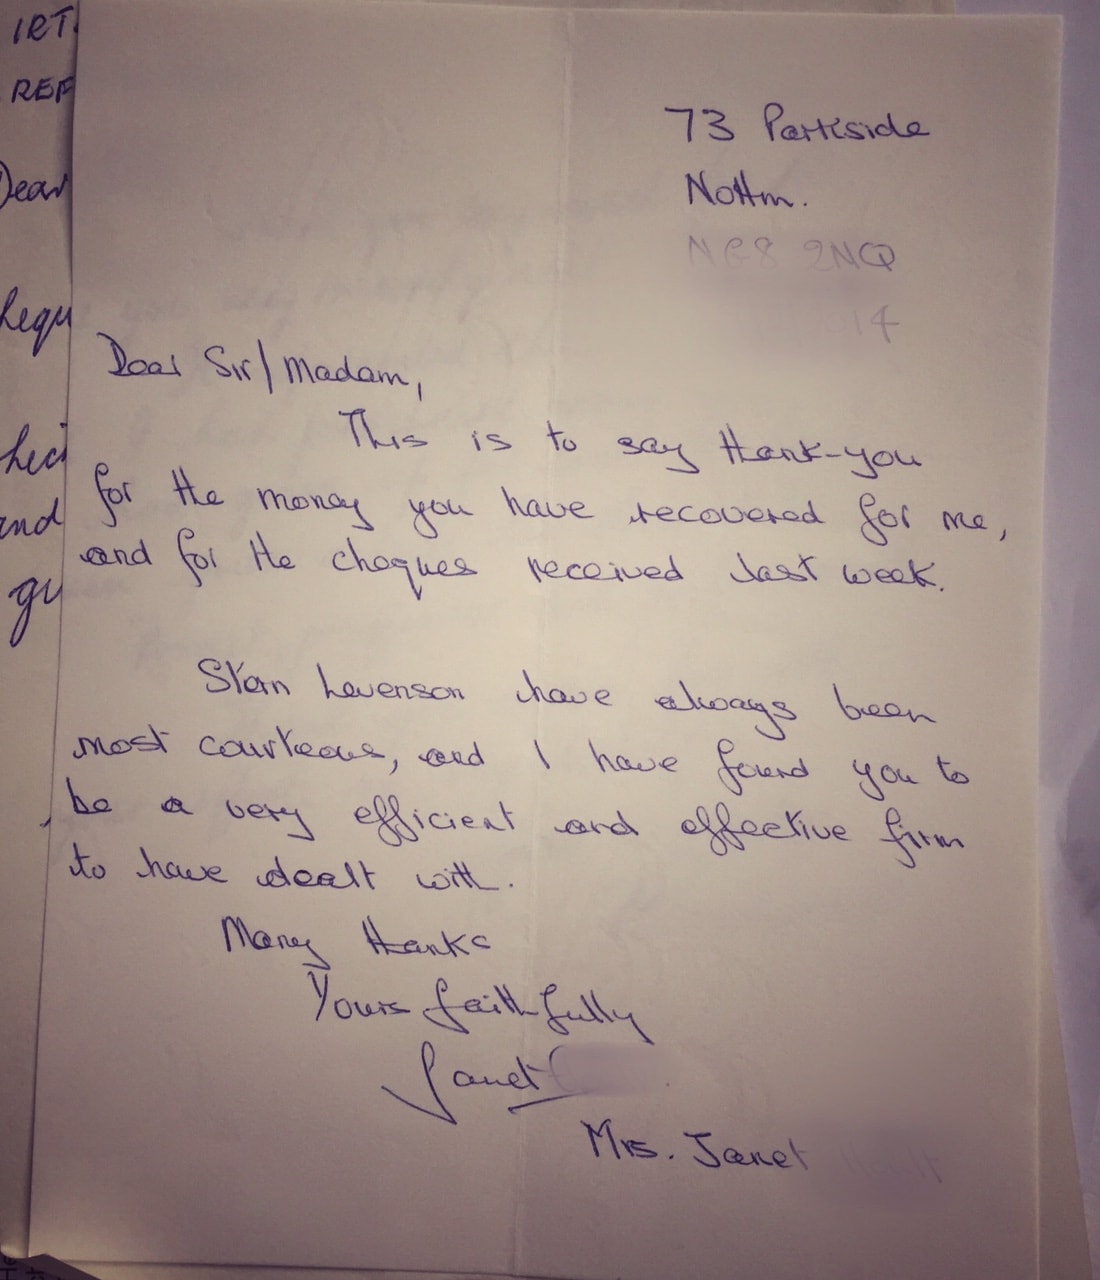 IRT.
REF
Dear
Requ
and
gu
73 Parkside
Nottm.
NG8 2NQ
Dear Sir/Madam,
This is to say thank-you
for the money you have recovered for me,
and for the cheques received last week.
Stern Levenson have always been
most courteous, and I have found you to
be a very efficient and effective firm
to have dealt with.
Many thanks
Yours faithfully
Janet
Mrs. Janet